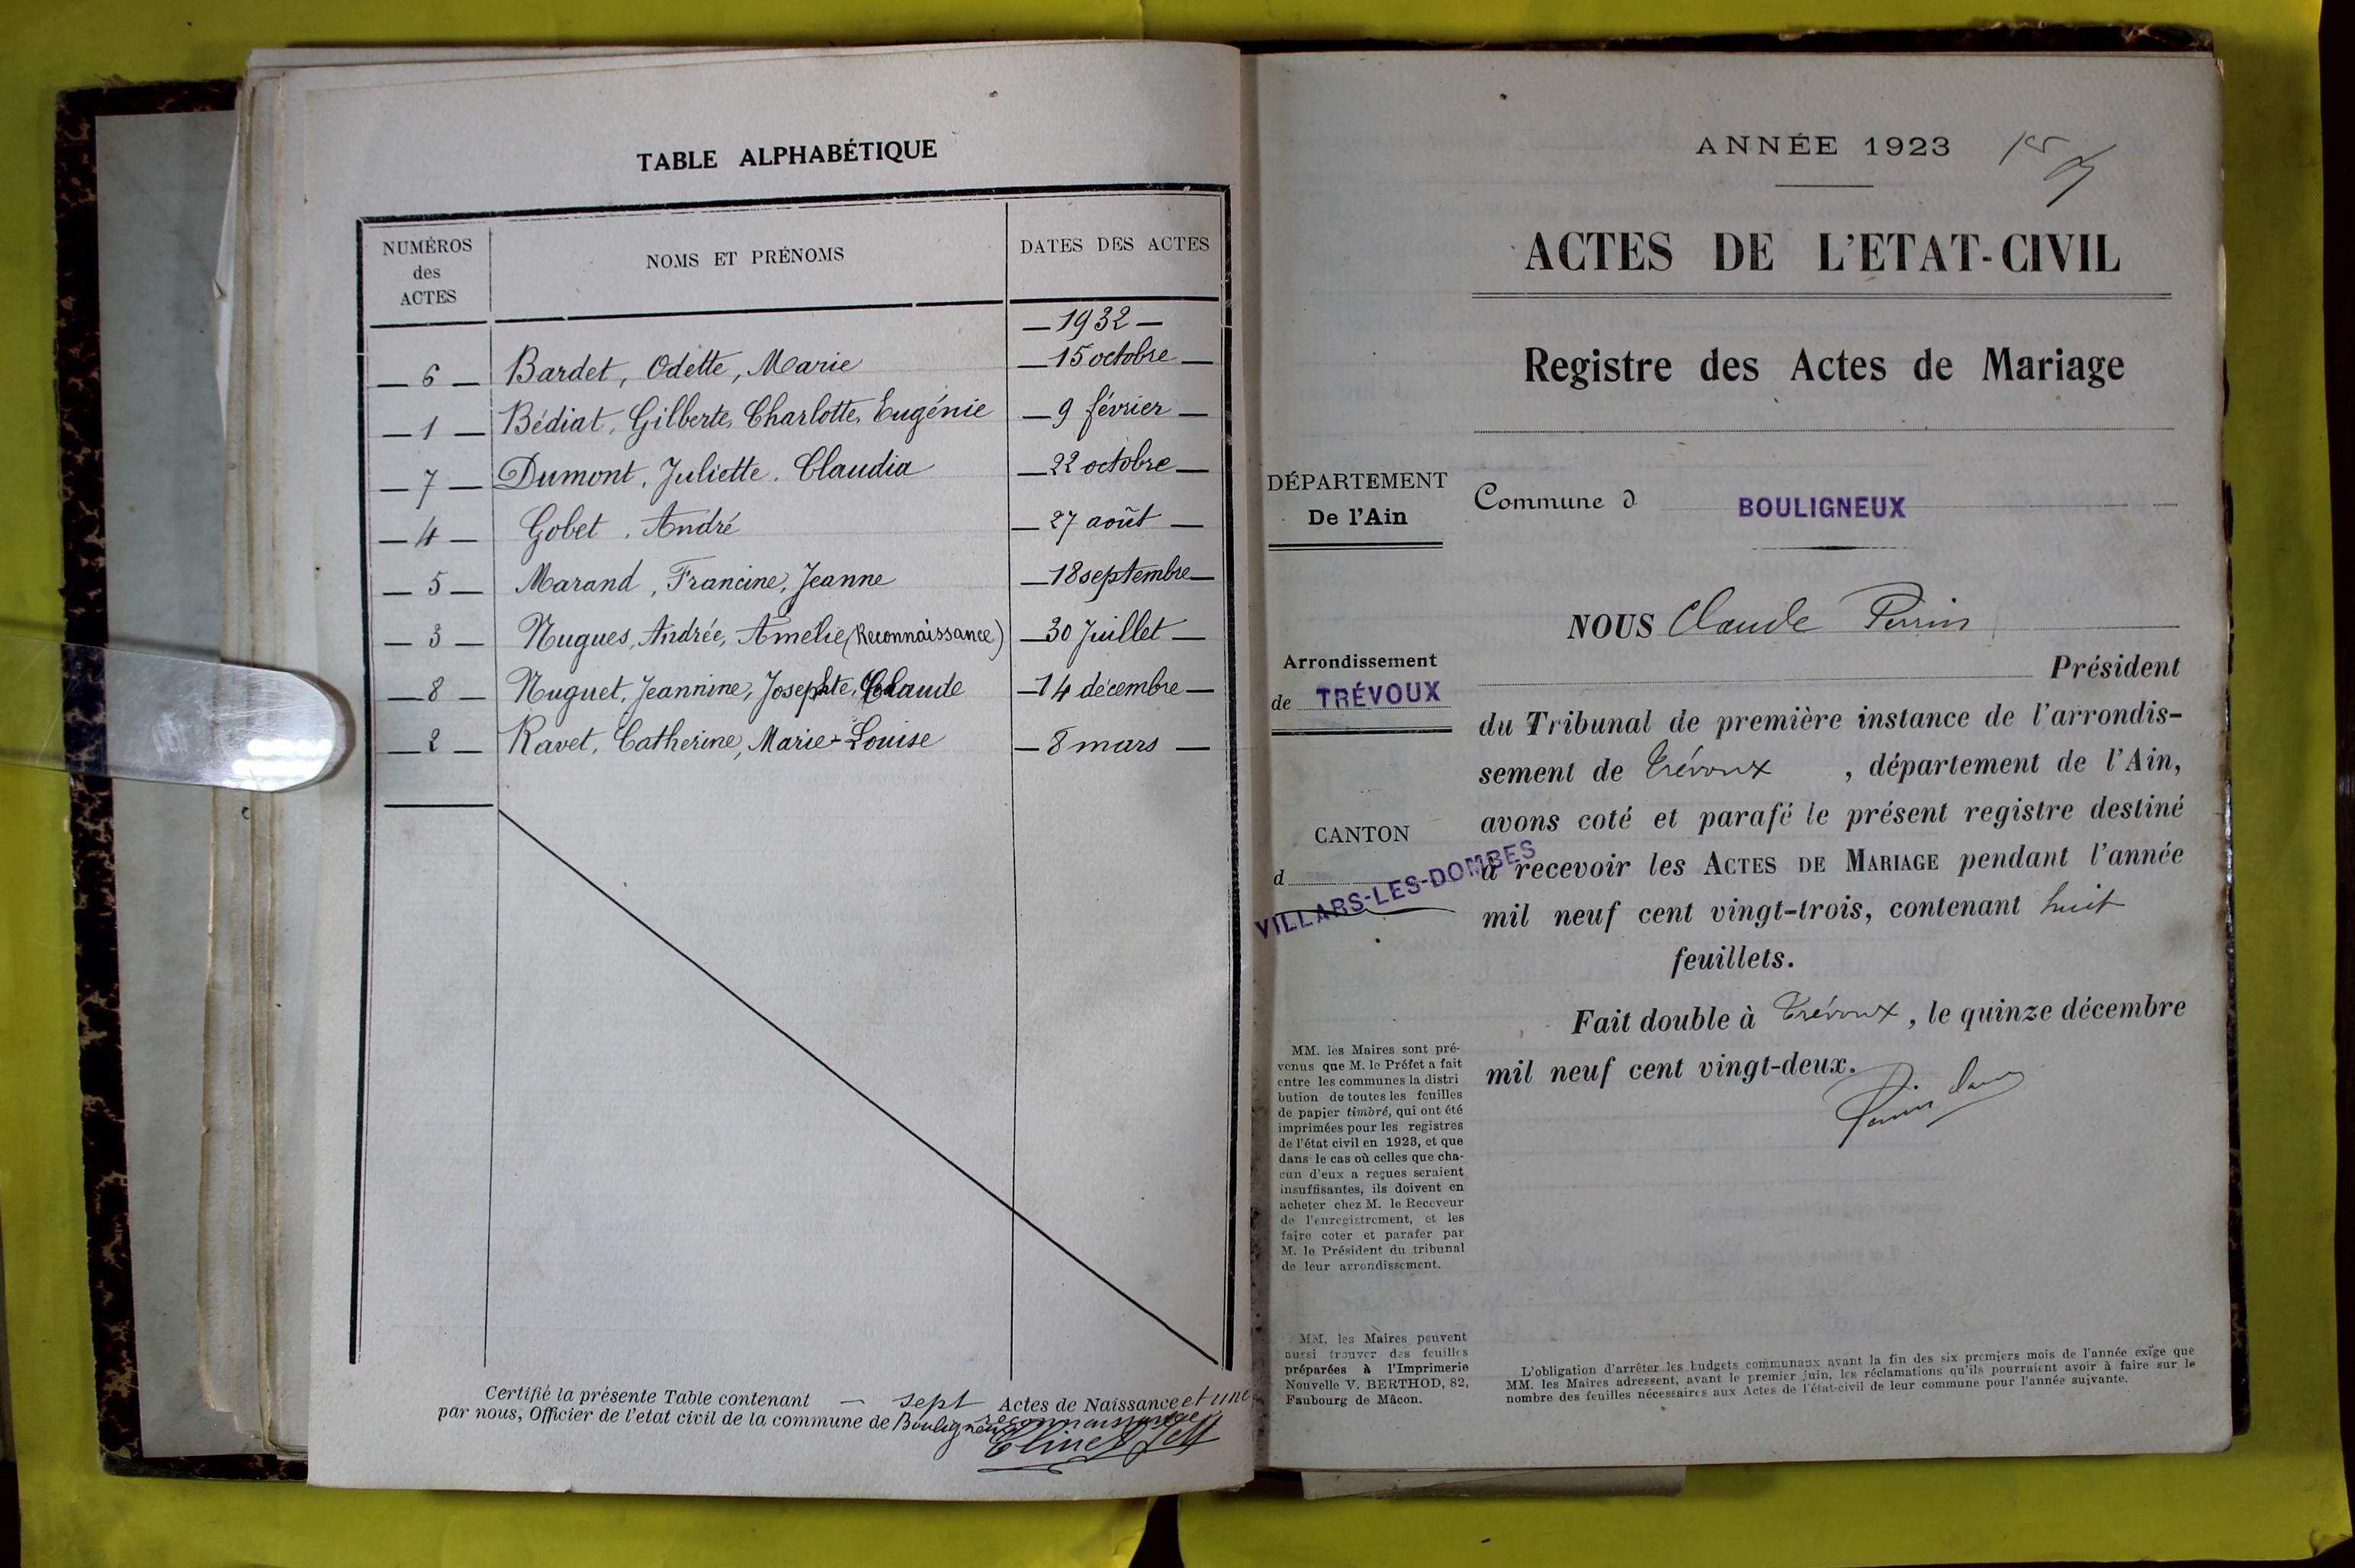 TABLE ALPHABÉTIQUE
NUMÉROS des ACTES NOMS ET PRÉNOMS DATES DES ACTES
— 1932 —
— 6 — Bardet, Odette, Marie — 15 octobre —
— 1 — Bédiat, Gilberte, Charlotte, Eugénie — 9 février —
— 7 — Dumont, Juliette. Claudia — 22 octobre —
— 4 — Gobet. André — 27 août —
— 5 — Marand, Francine, Jeanne — 18 septembre —
— 3 — Nugues, Andrée, Amélie (Reconnaissance) — 30 Juillet —
— 8 — Nuguet, Jeannine, Josephte, Claude — 14 décembre —
— 2 — Ravet, Catherine, Marie-Louise — 8 mars —
Certifié la présente Table contenant — sept Actes de Naissance et une
par nous, Officier de l'etat civil de la commune de Bouligneux
reconnaissance
ANNÉE 1923
ACTES DE L'ETAT-CIVIL
Registre des Actes de Mariage
DÉPARTEMENT
De l'Ain
Commune d BOULIGNEUX
Arrondissement
de TRÉVOUX
CANTON
d
VILLARS-LES-DOMBES
NOUS Claude Perrin
Président
du Tribunal de première instance de l'arrondis-
sement de Trévoux, département de l'Ain,
avons coté et parafé le présent registre destiné
à recevoir les ACTES DE MARIAGE pendant l'année
mil neuf cent vingt-trois, contenant huit
feuillets.
Fait double à Trévoux, le quinze décembre
mil neuf cent vingt-deux.
MM. les Maires sont pré-
venus que M. le Préfet a fait
entre les communes la distri
bution de toutes les feuilles
de papier timbré, qui ont été
imprimées pour les registres
de l'état civil en 1923, et que
dans le cas où celles que cha-
cun d'eux a reçues seraient
insuffisantes, ils doivent en
acheter chez M. le Receveur
de l'enregistrement, et les
faire coter et parafer par
M. le Président du tribunal
de leur arrondissement.
MM. les Maires peuvent
aussi trouver des feuilles
préparées à l'Imprimerie
Nouvelle V. BERTHOD, 82,
Faubourg de Mâcon.
L'obligation d'arrêter les budgets communaux avant la fin des six premiers mois de l'année exige que
MM. les Maires adressent, avant le premier juin, les réclamations qu'ils pourraient avoir à faire sur le
nombre des feuilles nécessaires aux Actes de l'état-civil de leur commune pour l'année suivante.